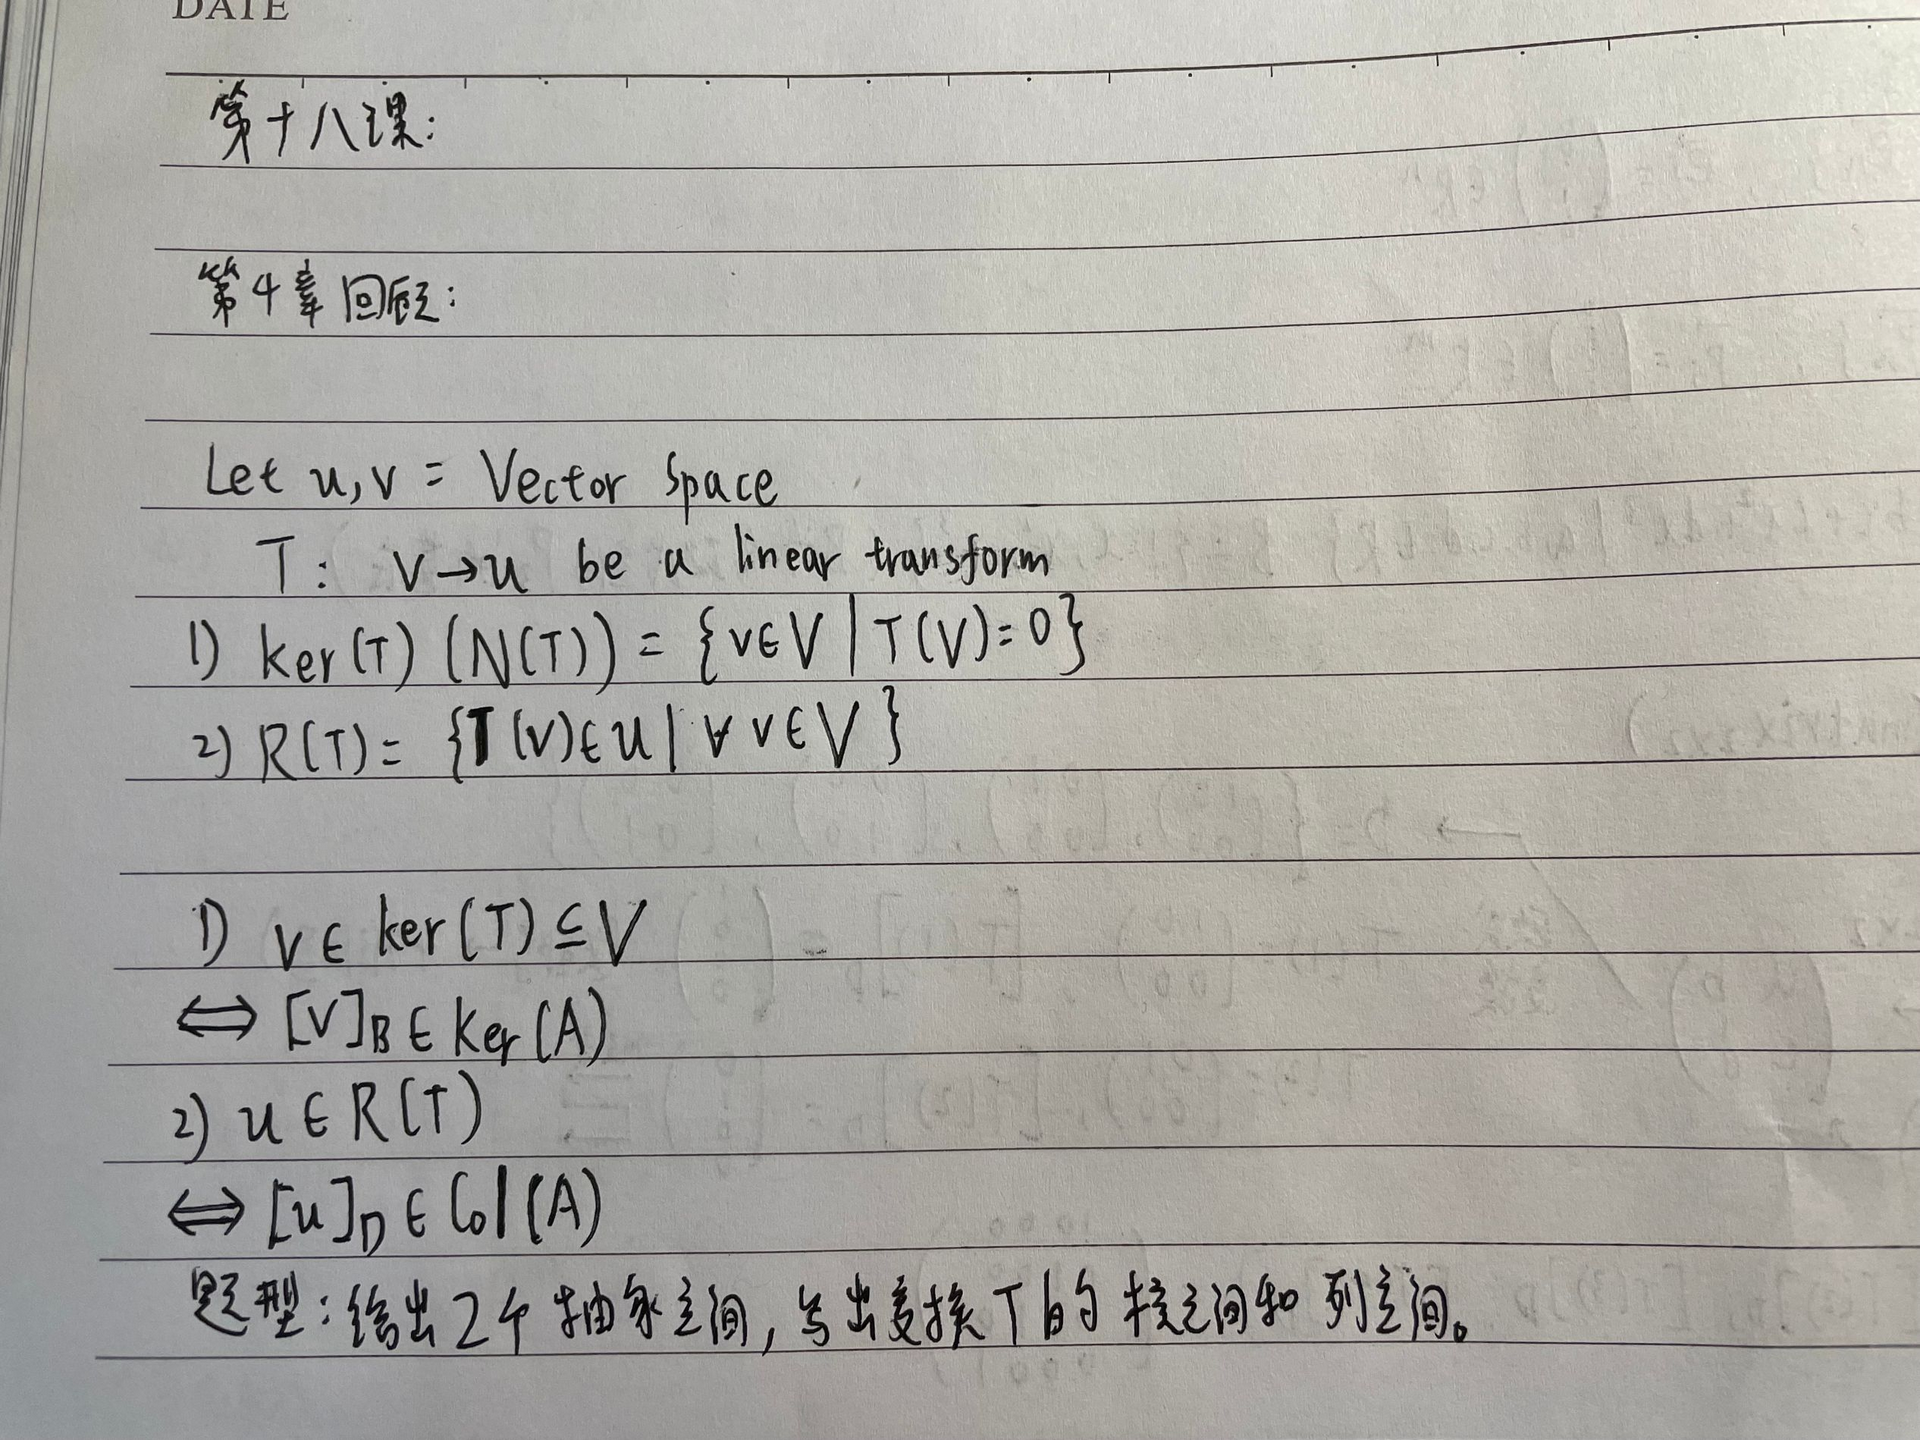 DATE
第十八课:
第4章回顾:
Let u,v = Vector Space
T: V→u be a linear transform
1) ker(T) (N(T)) = {v∈V | T(V)=0}
2) R(T) = {T(v)∈u | ∀ v∈V}
1) v∈ ker(T) ⊆ V
⇔ [V]_B ∈ Ker(A)
2) u ∈ R(T)
⇔ [u]_D ∈ Col(A)
题型:给出2个抽象空间,写出变换T的核空间和列空间。